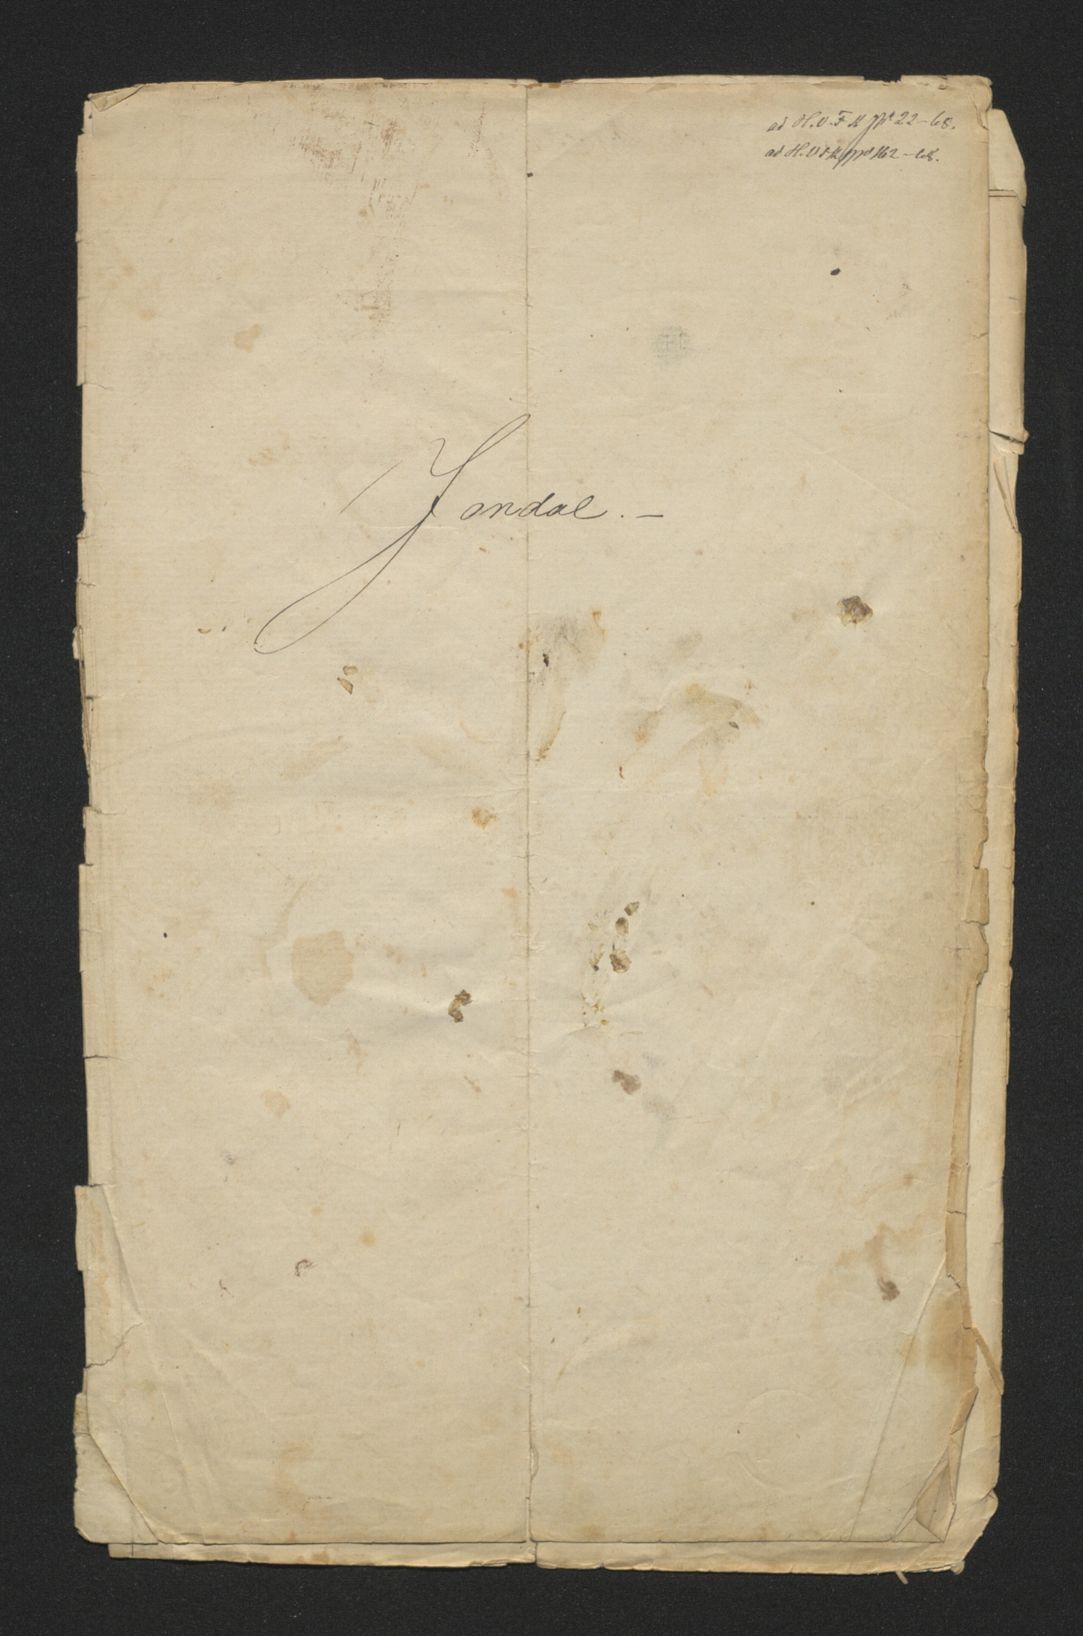 ad H.V.F.K pp 22-68.
ad H.V.F.K pp 162-68.
Jondal. –